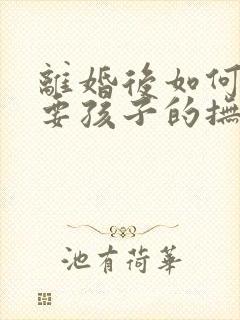 離婚後如何
要孩子的撫
池有荷華